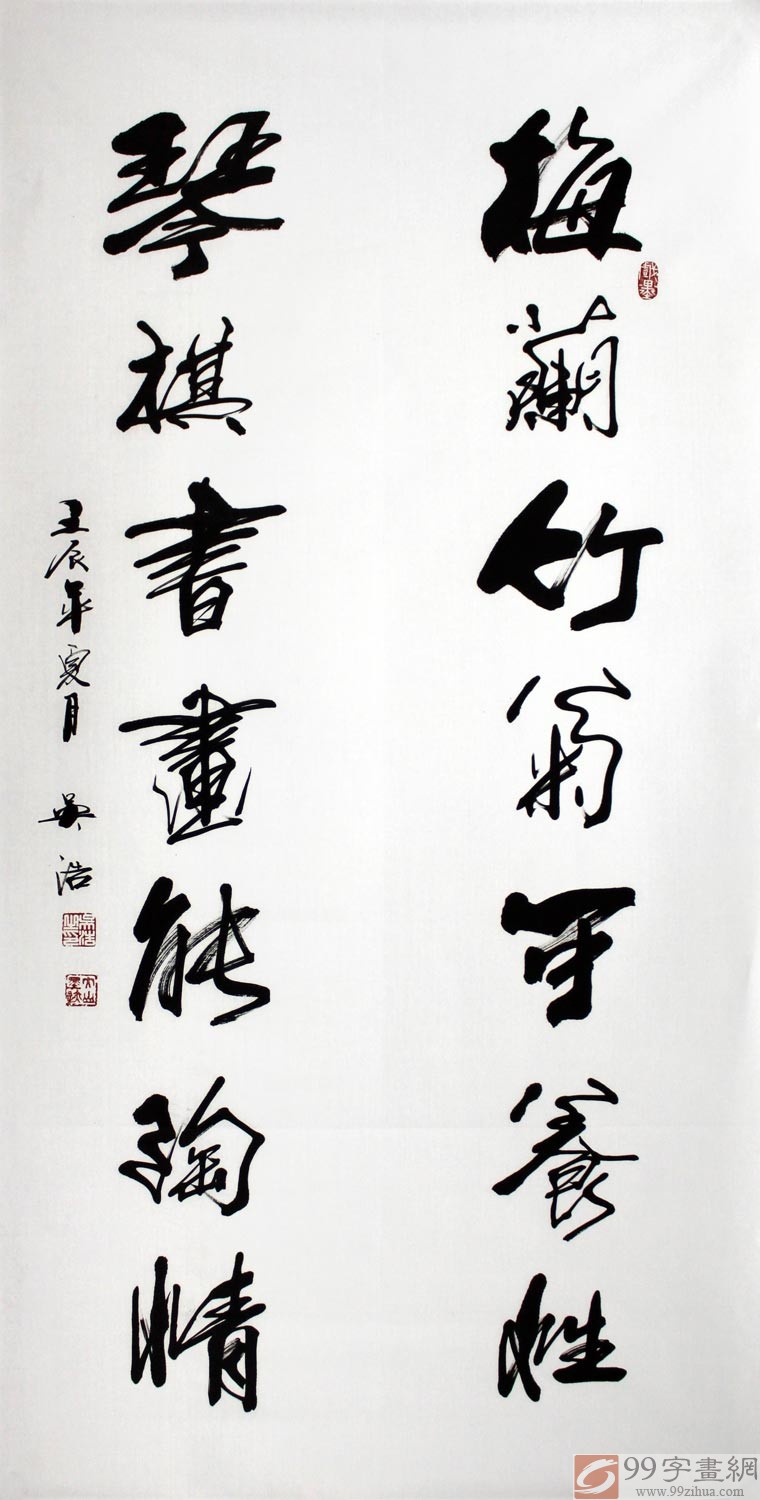 梅蘭竹菊可養性
琴棋書畫能陶情
壬辰年夏月 吳浩
吳浩之印
99字畫網
www.99zihua.com